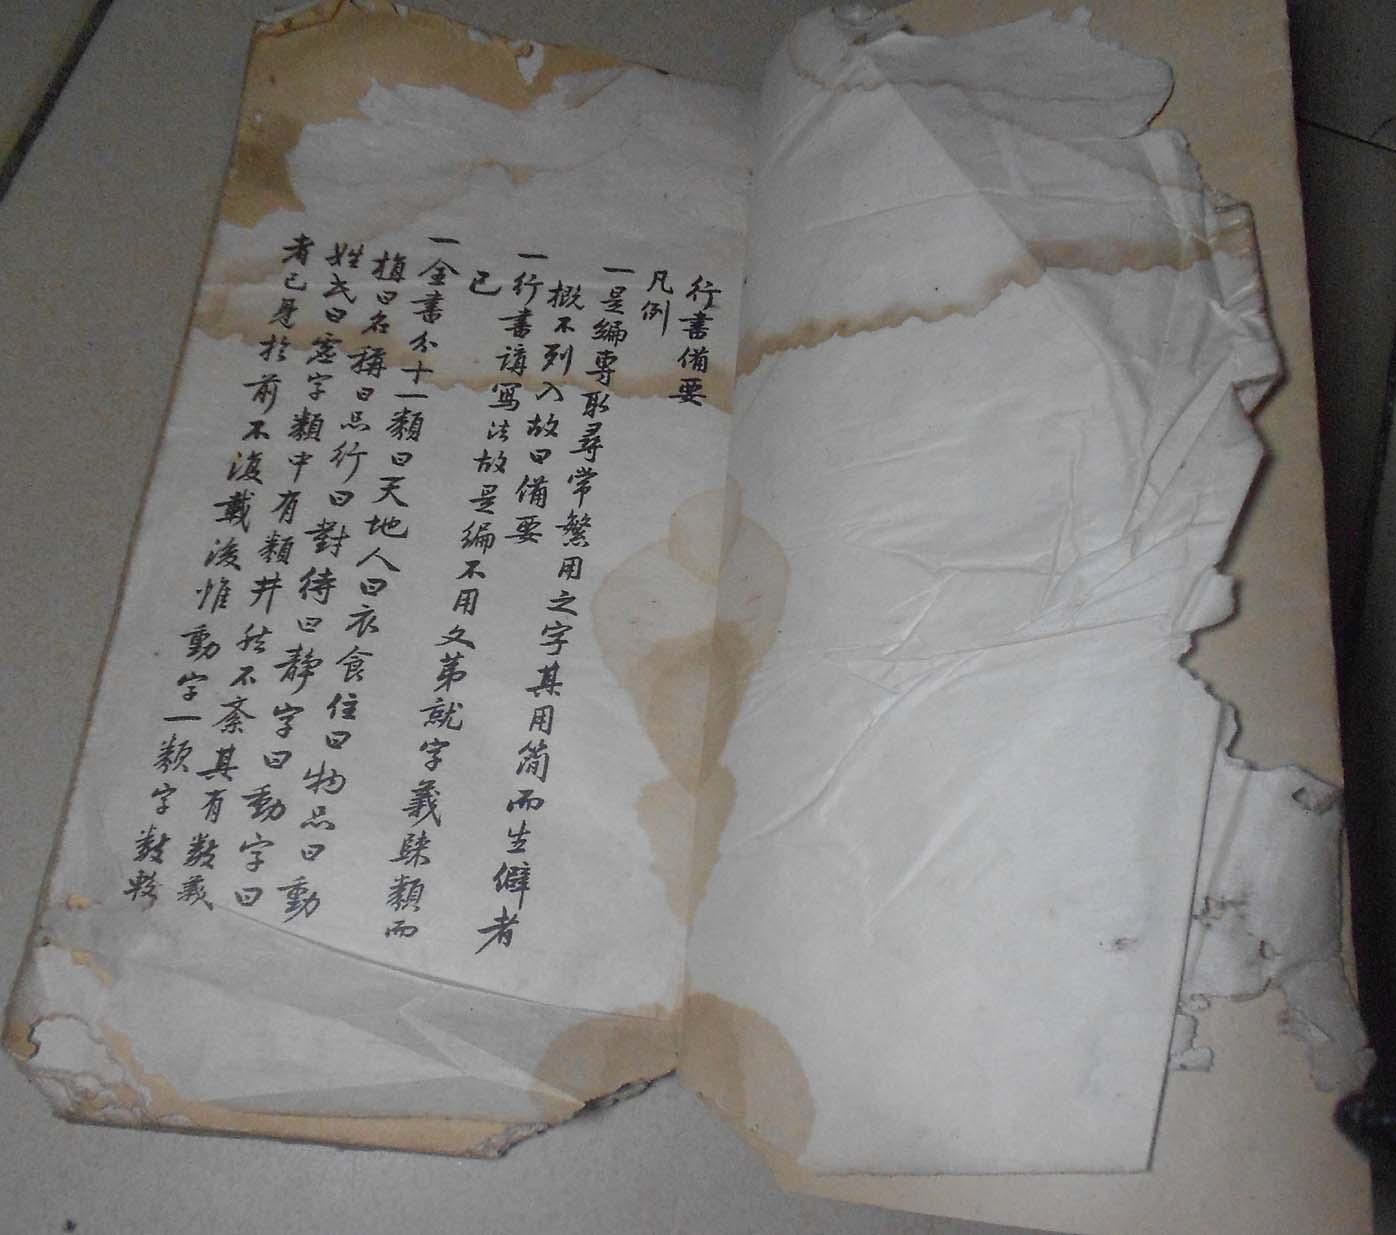 行書備要
凡例
一是編專取尋常繁用之字其用简而生僻者
概不列入故曰備要
一行書講寫法故是編不用文第就字義隸類而
已
一全書分十一類曰天地人曰衣食住曰物品曰動
植曰名稱曰品行曰對待曰靜字曰動字曰
姓氏曰虛字類中有類井然不紊其有數義
者已見於前不復載後惟動字一類字數較